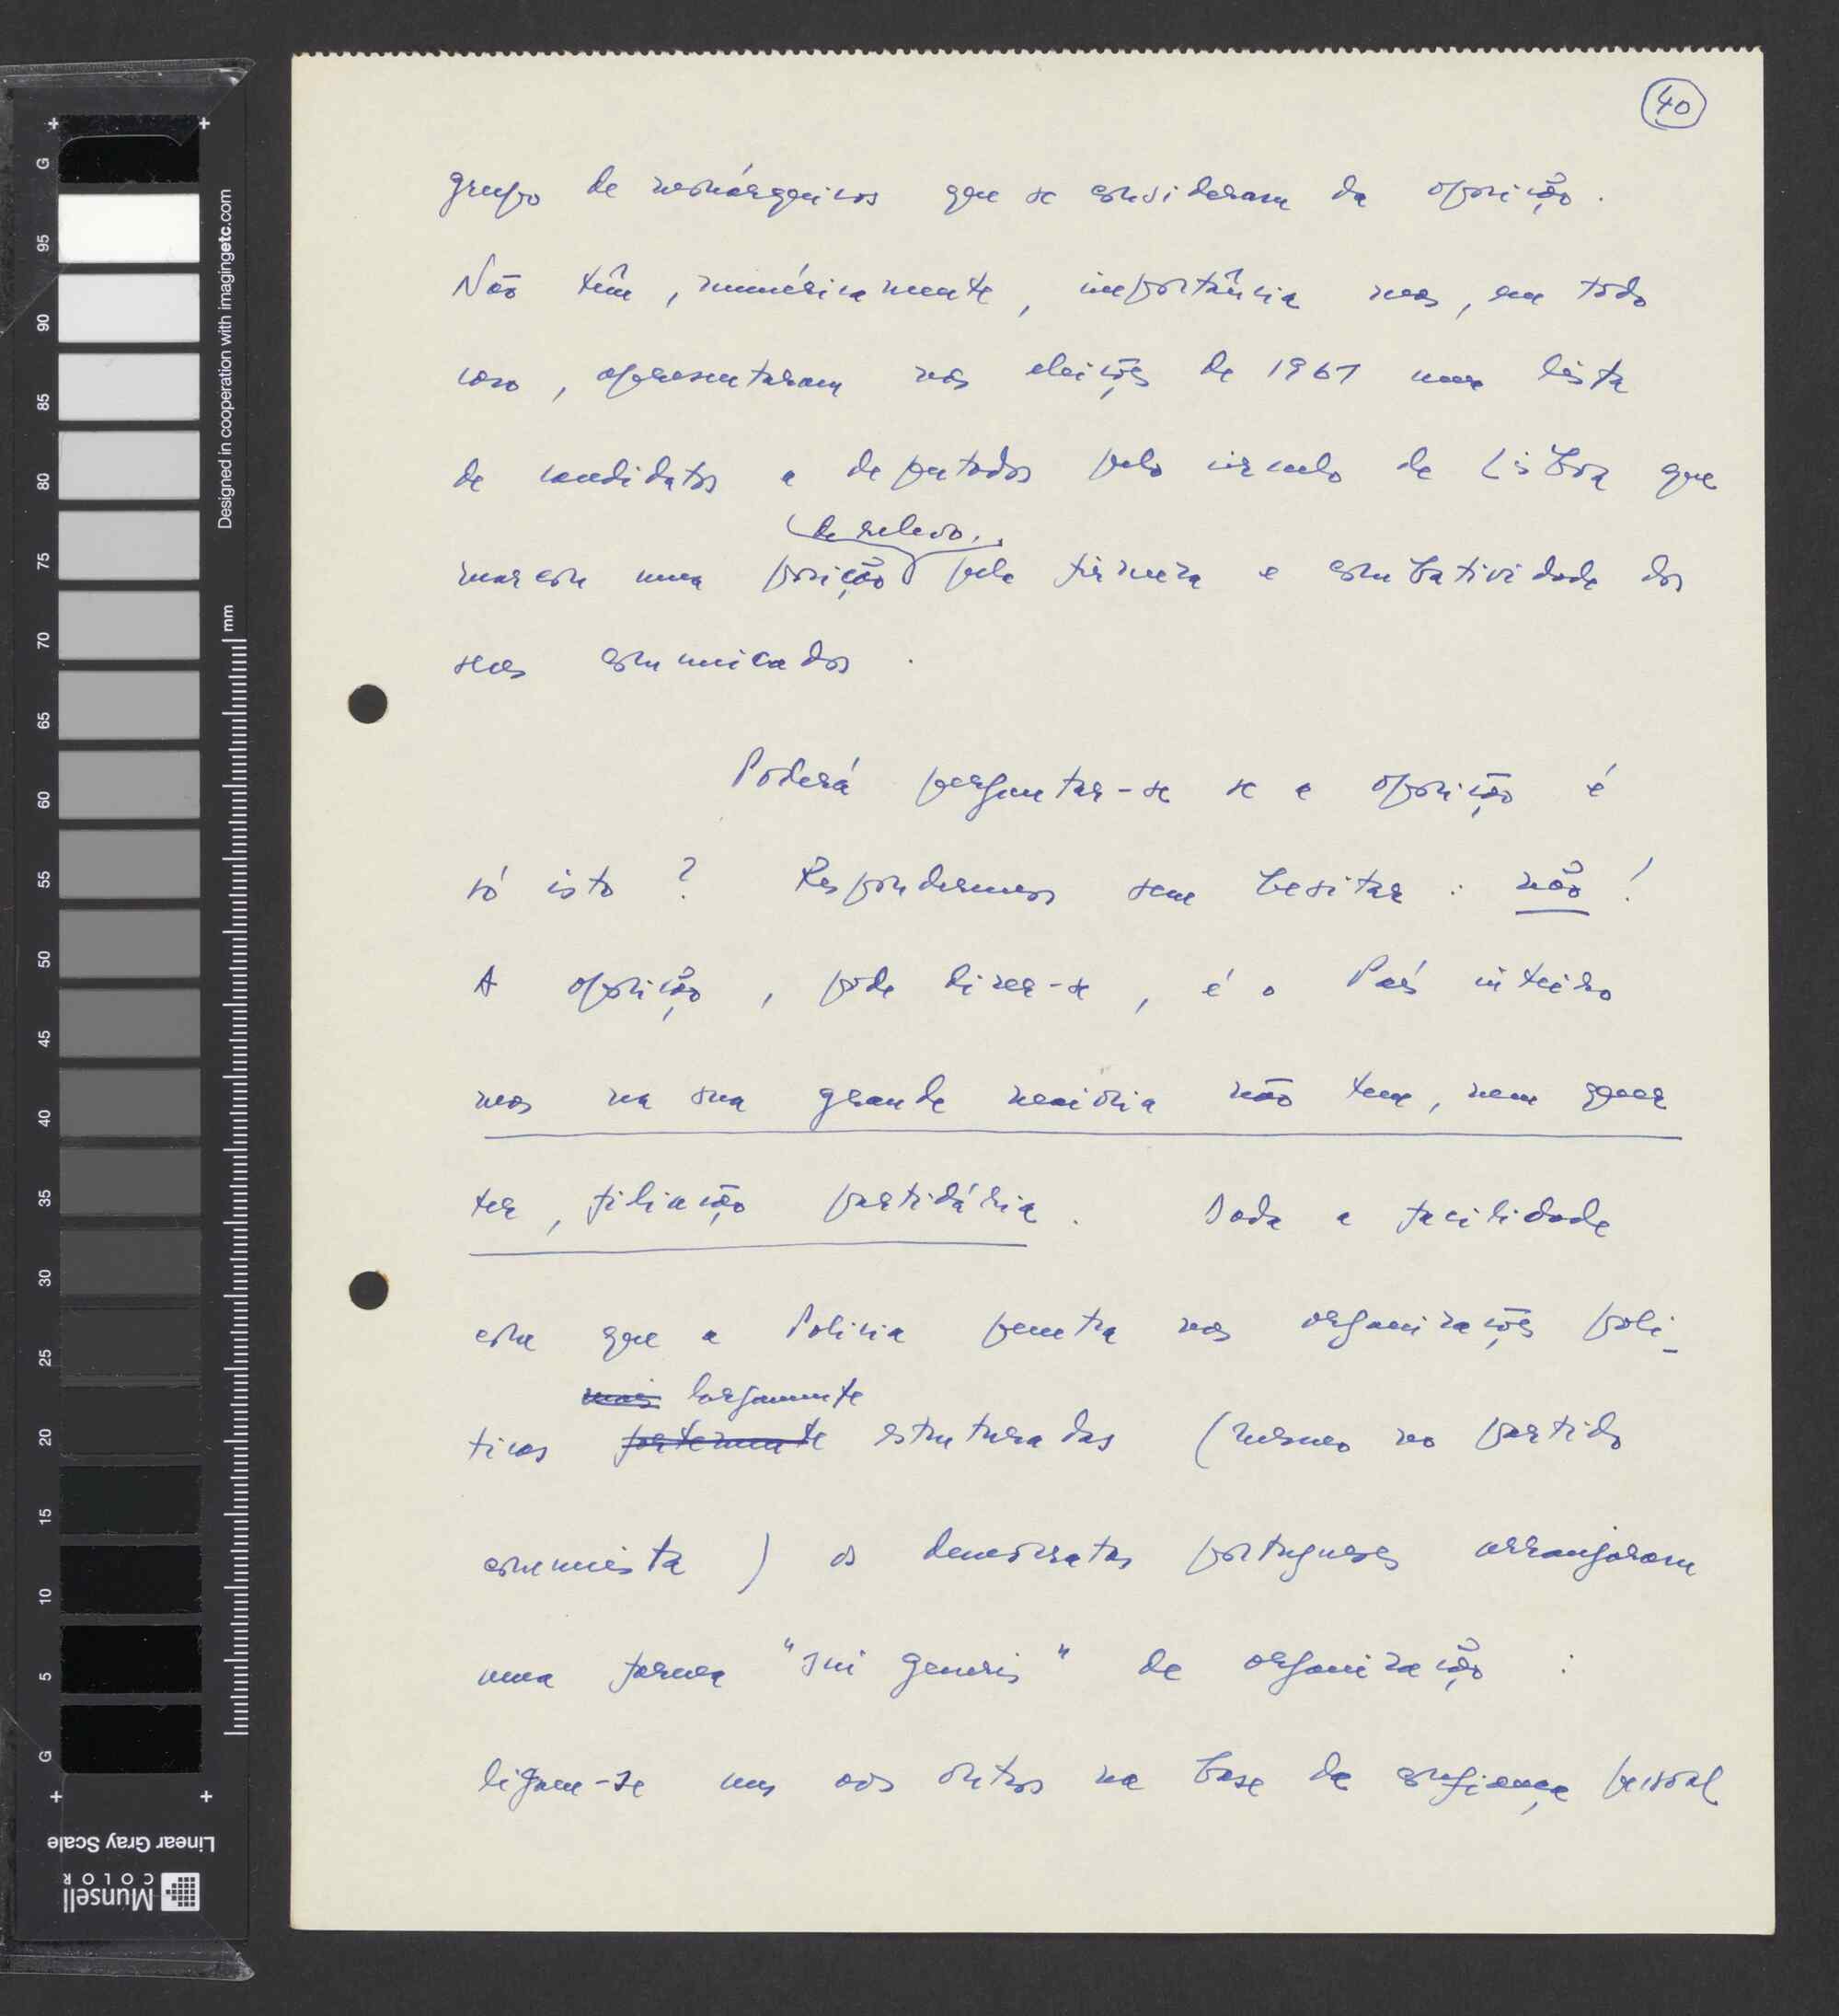 40
grupo de monárquicos que se consideram da oposição.
Não têm, numéricamente, importância mas, em todo
caso, apresentaram nas eleições de 1961 uma lista
de candidatos a deputados pelo circulo de Lisboa que
de relevo,
marcou uma posição pela firmeza e combatividade dos
seus comunicados.
Poderá perguntar-se se a oposição é
só isto? Responderemos sem hesitar: não!
A oposição, pode dizer-se, é o País inteiro
mas na sua grande maioria não tem, nem quer
ter, filiação partidária. Dada a facilidade
com que a Policia penetra nas organizações poli-
mais largamente
ticas fortemente estruturadas (mesmo no partido
comunista) os democratas portugueses arranjaram
uma forma "sui generis" de organização:
ligam-se uns aos outros na base da confiança pessoal
Designed in cooperation with imagingetc.com
mm
G 95 90 85 80 75 70 65 60 55 50 45 40 35 30 25 20 15 10 5 G
Linear Gray Scale
Munsell
COLOR